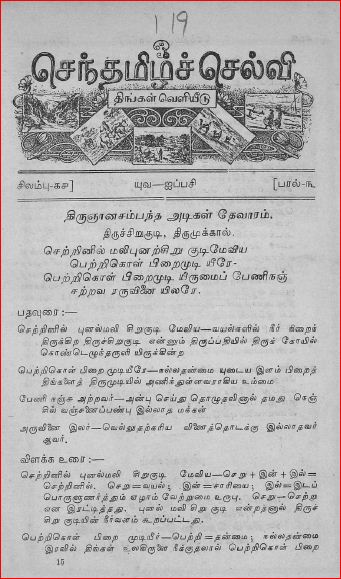 119
செந்தமிழ்ச் செல்வி
திங்கள் வெளியீடு
சிலம்பு-கள] யுவ—ஐப்பசி [பரல்-௩
திருஞானசம்பந்த அடிகள் தேவாரம்.
திருச்சிறுகுடி, திருமுக்கால்.
செற்றினில் மலிபுனற்சிறு குடிமேவிய
பெற்றிகொள் பிறைமுடி யீரே-
பெற்றிகொள் பிறைமுடி யீருமைப் பேணிநஞ்
சற்றவ ரருவினை யிலரே.
பதவுரை :—
செற்றினில் புனல்மலி சிறுகுடி மேவிய—வயல்களில் நீர் நிறைந்
திருக்கிற திருச்சிறுகுடி என்னும் திருப்பதியில் திருக் கோயில்
கொண்டெழுந்தருளி யிருக்கின்ற
பெற்றிகொள் பிறைமுடியீரே—நல்லதன்மை யுடைய இளம் பிறைத்
திங்களைத் திருமுடியில் அணிந்துள்ளவராகிய உம்மை
பேணி நஞ்சு அற்றவர்—அன்பு செய்து தொழுதலினால் தமது நெஞ்
சில் வஞ்சனைப்பண்பு இல்லாத மக்கள்
அருவினை இலர்—வெல்லுதற்கரிய வினைத்தொடக்கு இல்லாதவர்
ஆவர்.
விளக்க உரை :—
செற்றினில் புனல்மலி சிறுகுடி மேவிய—செறு + இன் + இல்=
செற்றினில். செறு=வயல்; இன்=சாரியை; இல்=இடப்
பொருளுணர்த்தும் ஏழாம் வேற்றுமை உருபு. செறு—செற்று
என இரட்டித்தது. புனல் மலி சிறு குடி என்றதனால் திருச்சி
று குடியின் நீர்வளம் கூறப்பட்டது.
பெற்றிகொள் பிறை முடியீர்—பெற்றி=தன்மை; நல்லதன்மை
இரவில் திங்கள் உலகிருளை நீக்குதலால் பெற்றிகொள் பிறை
15